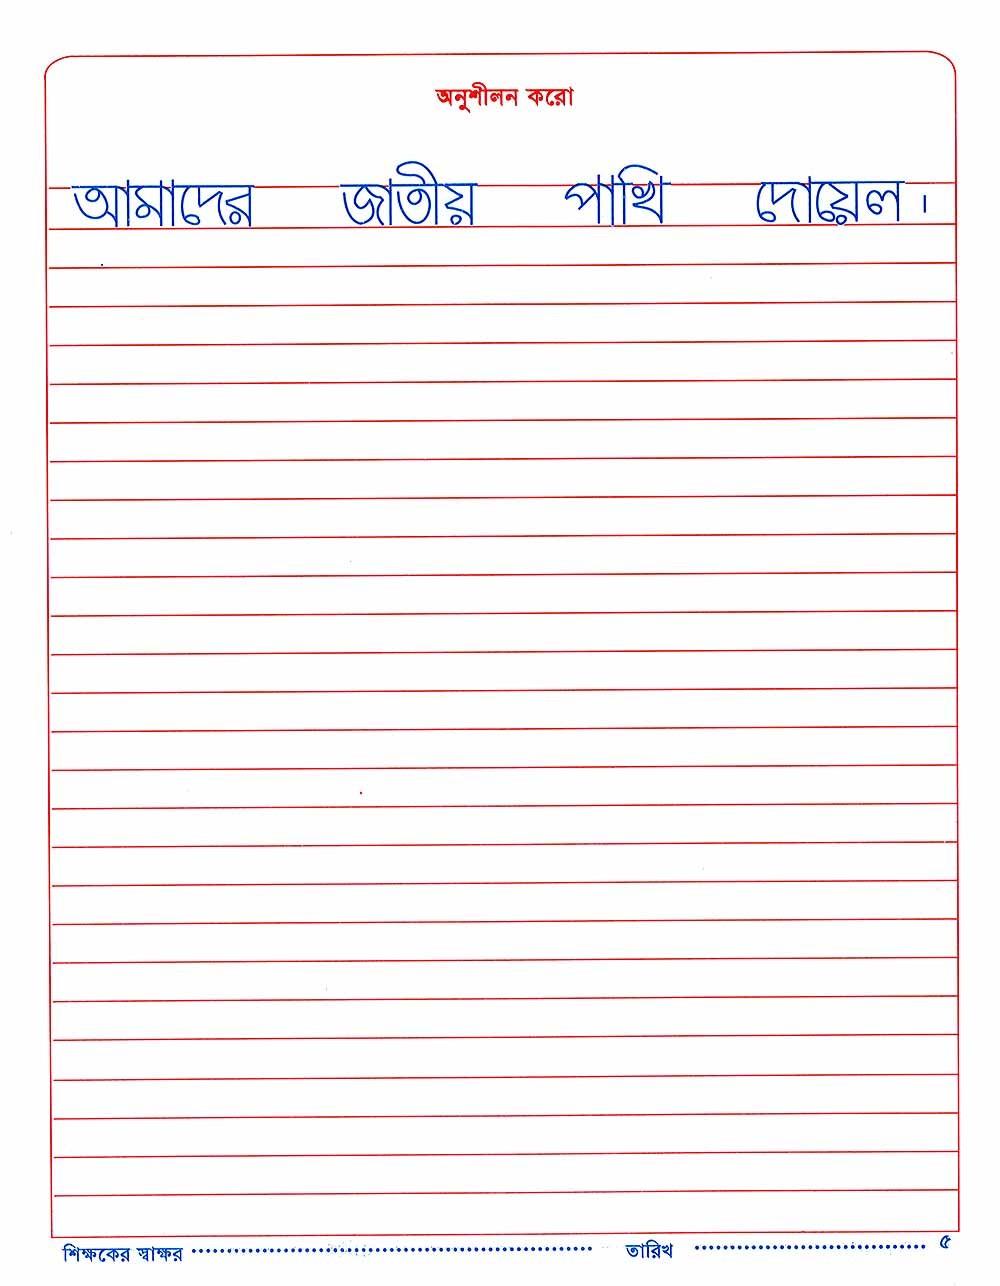 অনুশীলন করো
আমাদের জাতীয় পাখি দোয়েল ।
শিক্ষকের স্বাক্ষর ........................................ তারিখ ........................................ ৫